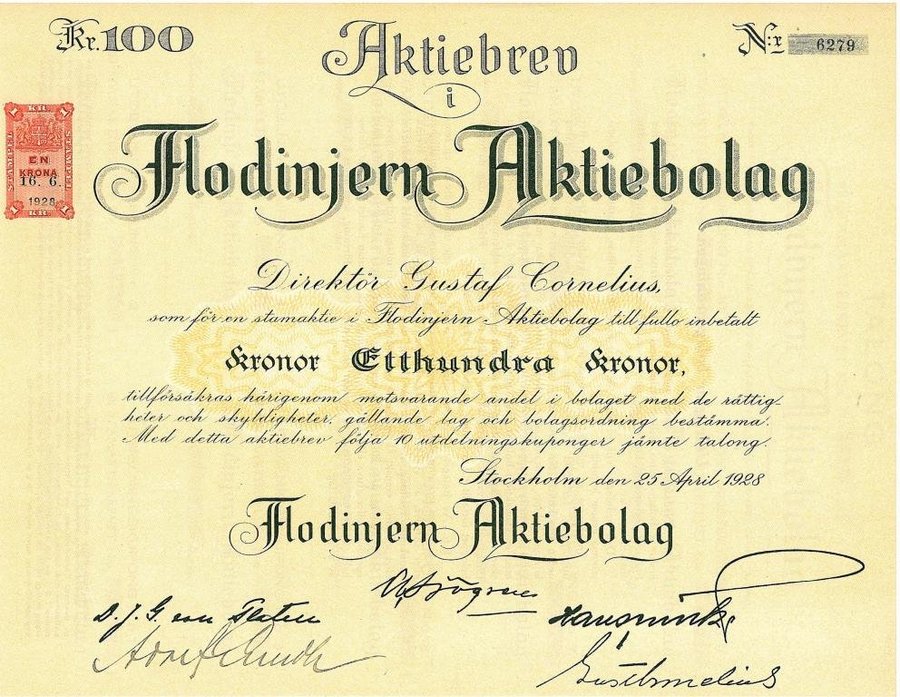 Kr. 100
Aktiebrev
N:r 6279
i
Flodinjern Aktiebolag
KR.
1 1
STÄMPEL
EN
KRONA
16. 6.
1928
1 1
KR.
Direktör Gustaf Cornelius,
som för en stamaktie i Flodinjern Aktiebolag till fullo inbetalt
Kronor Etthundra Kronor,
tillförsäkras härigenom motsvarande andel i bolaget med de rättig-
heter och skyldigheter, gällande lag och bolagsordning bestämma.
Med detta aktiebrev följa 10 utdelningskuponger jämte talong.
Stockholm den 25 April 1928
Flodinjern Aktiebolag
Sjögren
D. J. G. von Platen
Gust Cornelius